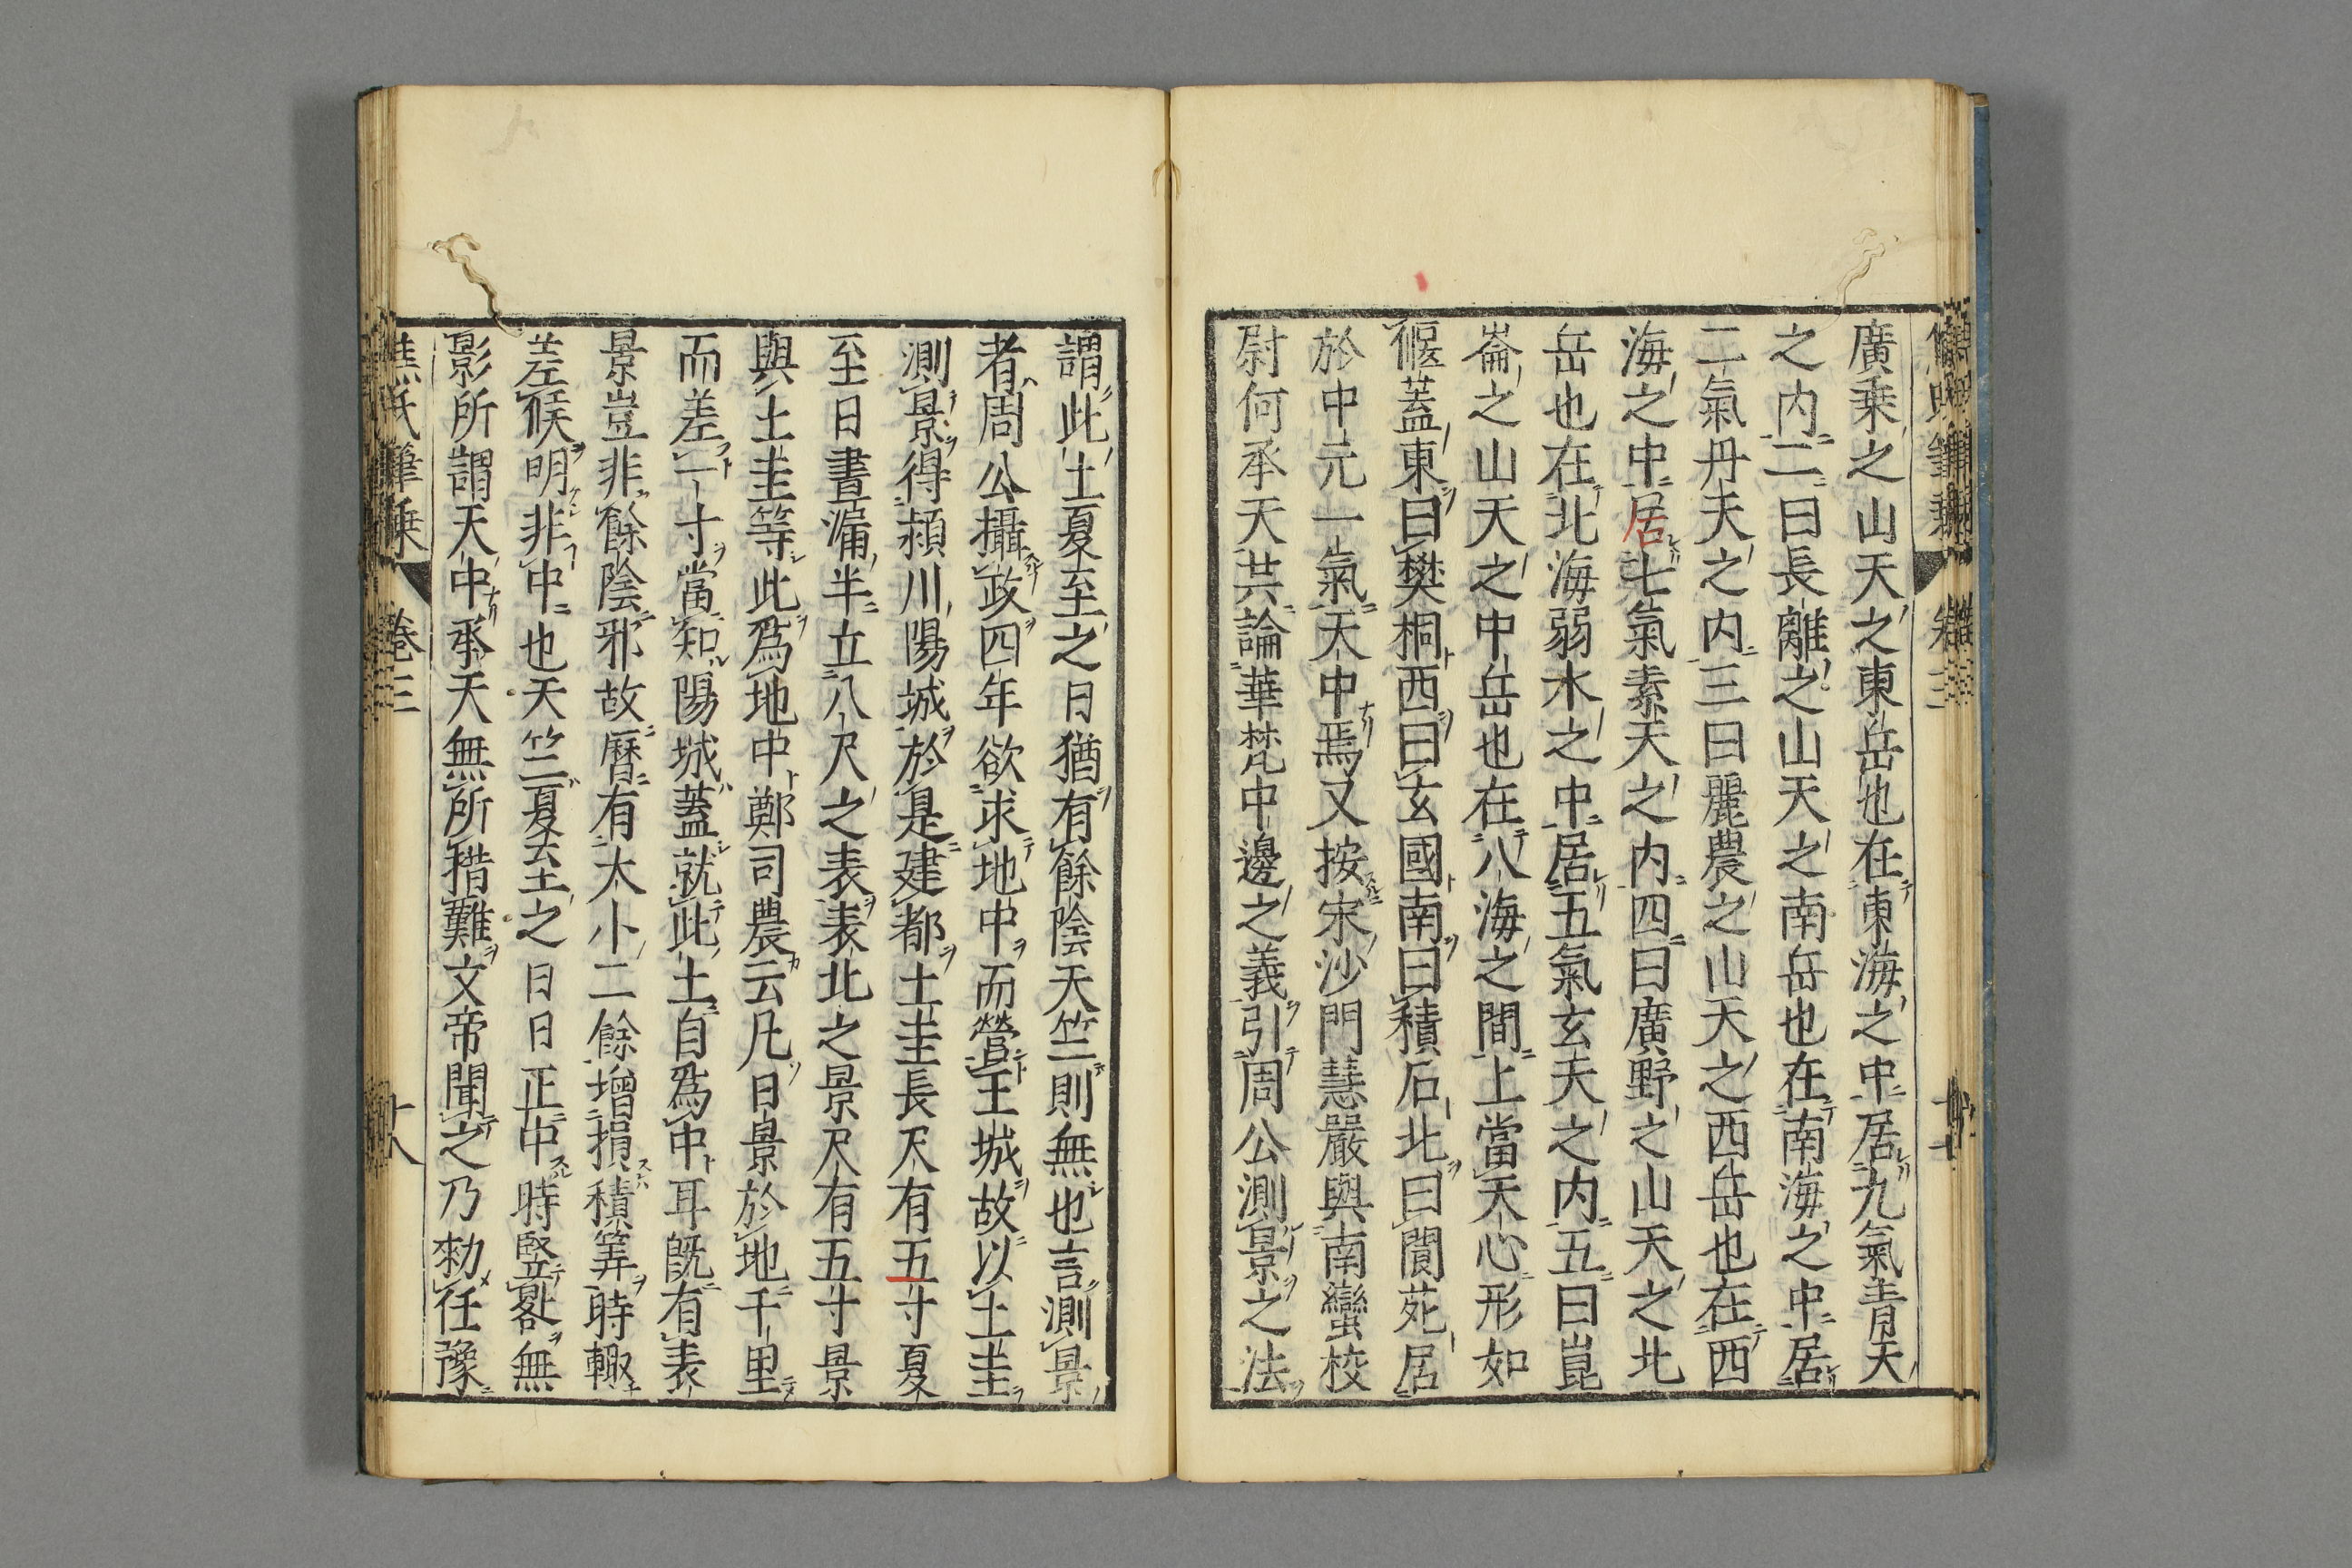 廣乗之山天之東岳也在東海之中居九氣青天
之内二曰長離之山天之南岳也在南海之中居
二氣丹天之内三曰麗農之山天之西岳也在西
海之中居七氣素天之内四曰廣野之山天之北
岳也在北海弱水之中居五氣玄天之内五曰崑
崙之山天之中岳也在八海之間上當天心形如
偃蓋東曰樊桐西曰玄國南曰積石北曰閬苑居
於中元一氣天中焉又按宋沙門慧嚴與南蠻校
尉何承天共論華梵中邊之義引周公測景之法
謂此土夏至之日猶有餘陰天竺則無也言測景
者周公攝政四年欲求地中而營王城故以土圭
測景得潁川陽城於是建都土圭長尺有五寸夏
至日晝漏半立八尺之表表北之景尺有五寸景
與土圭等此爲地中鄭司農云凡日景於地千里
而差一寸當知陽城蓋就此土自爲中耳既有表
景豈非餘陰邪故曆有大小二餘增損積筭時輙
差候明非中也天竺夏至之日日正中時竪晷無
影所謂天中承天無所措難文帝聞之乃勑任豫
焦氏筆乗
卷三
十八